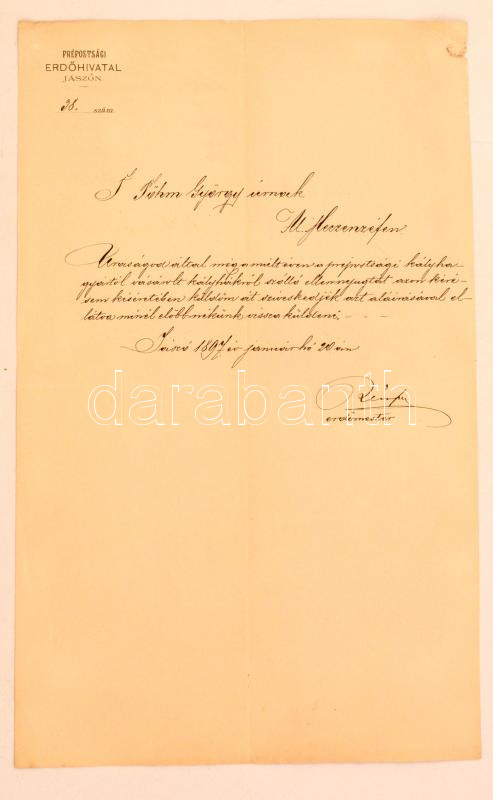 PRÉPOSTSÁGI
ERDŐHIVATAL
JÁSZÓN.
38. szám.
T. Böhm György úrnak
M. Meczenzéfen
Uraságod által még a mult évben a prépostsági kályha
gyártól vásárolt kályhákról szólló ellennyugtát azon kéré-
sem kiséretében küldöm át sziveskedjék azt aláirásával el-
látva minél előbb nékünk vissza küldeni. - - -
Jászó 1897 év január hó 20 án
erdőmester
darabanth